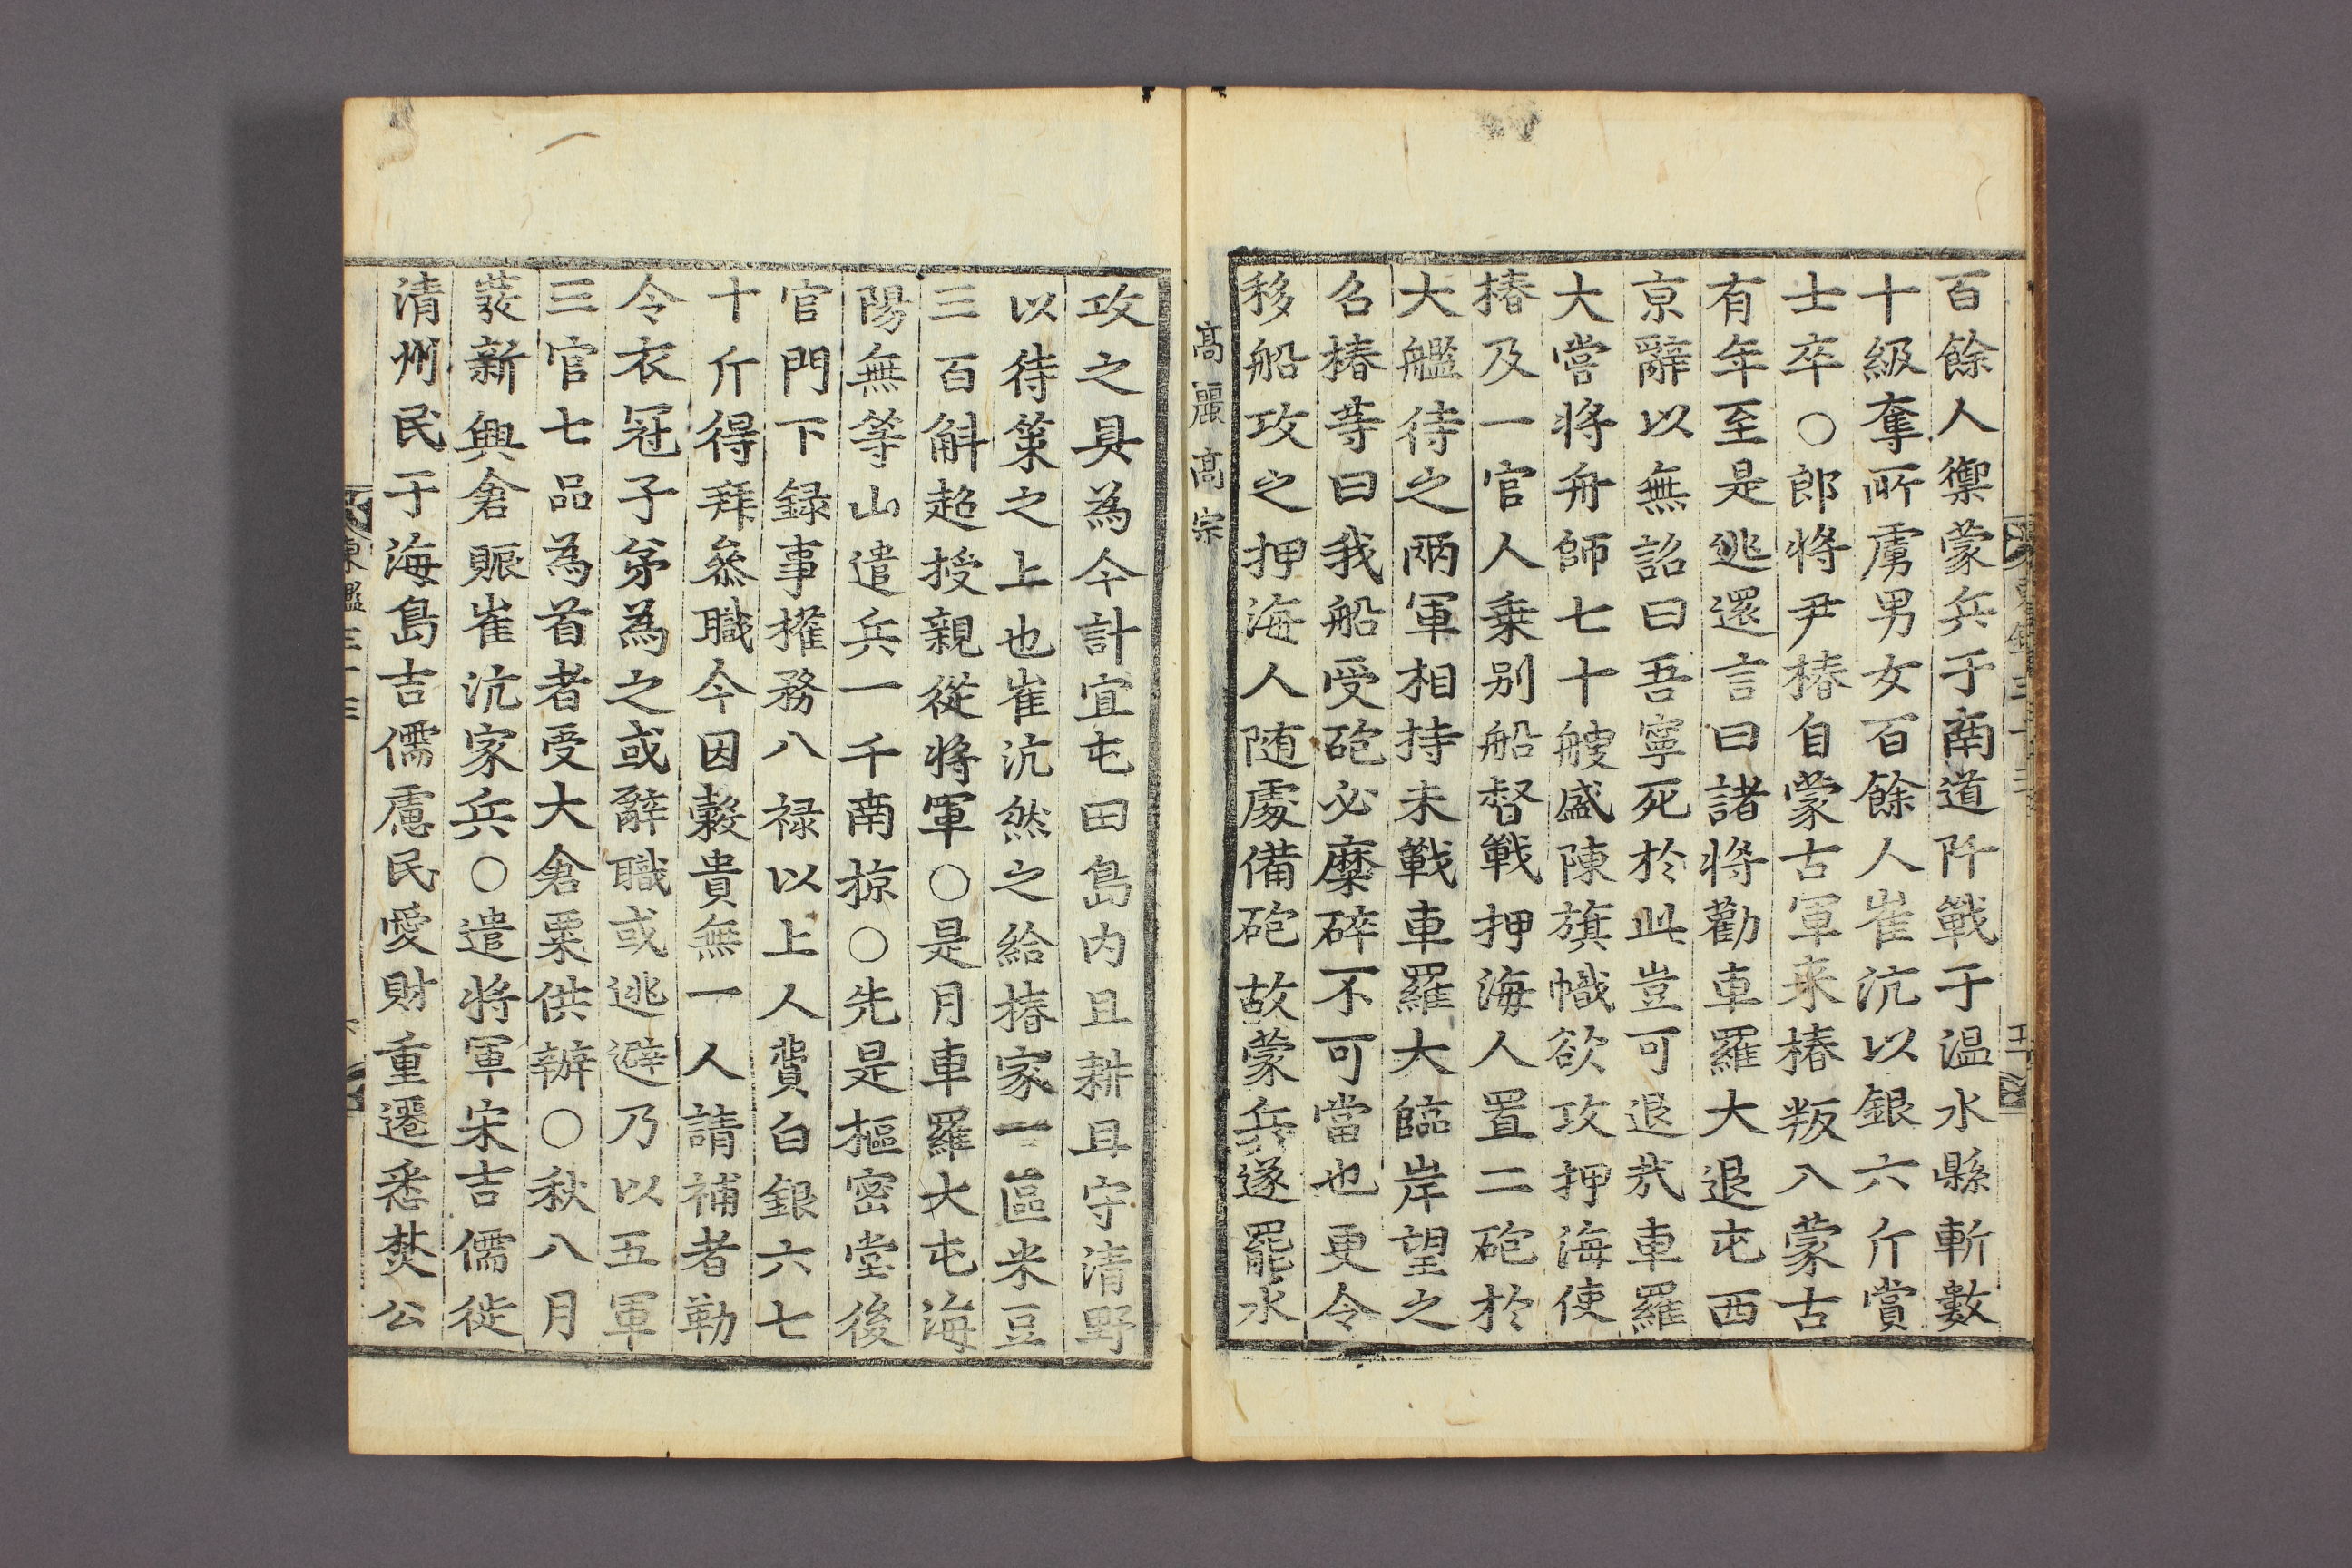 百餘人禦蒙兵于南道阡戰于温水縣斬數
十級奪所虜男女百餘人崔沆以銀六斤賞
士卒○郎將尹椿自蒙古軍来椿叛入蒙古
有年至是逃還言曰諸將勸車羅大退屯西
京辭以無詔曰吾寧死於此豈可退㢤車羅
大嘗將舟師七十艘盛陳旗幟欲攻押海使
椿及一官人乗别船督戰押海人置二砲於
大艦待之兩軍相持未戰車羅大臨岸望之
召椿等曰我船受砲必糜碎不可當也更令
移船攻之押海人随處備砲故蒙兵遂罷水
高麗高宗
攻之具為今計宜屯田島内且耕且守清野
以待策之上也崔沆然之給椿家一區米豆
三百斛超授親從將軍○是月車羅大屯海
陽無等山遣兵一千南掠○先是樞密堂後
官門下録事權務八禄以上人費白銀六七
十斤得拜叅職今因穀貴無一人請補者勒
令衣冠子弟為之或辭職或逃避乃以五軍
三官七品為首者受大倉粟供辦○秋八月
發新興倉賑崔沆家兵○遣將軍宋吉儒徙
清州民于海島吉儒慮民愛財重遷悉焚公
東鑑三十三